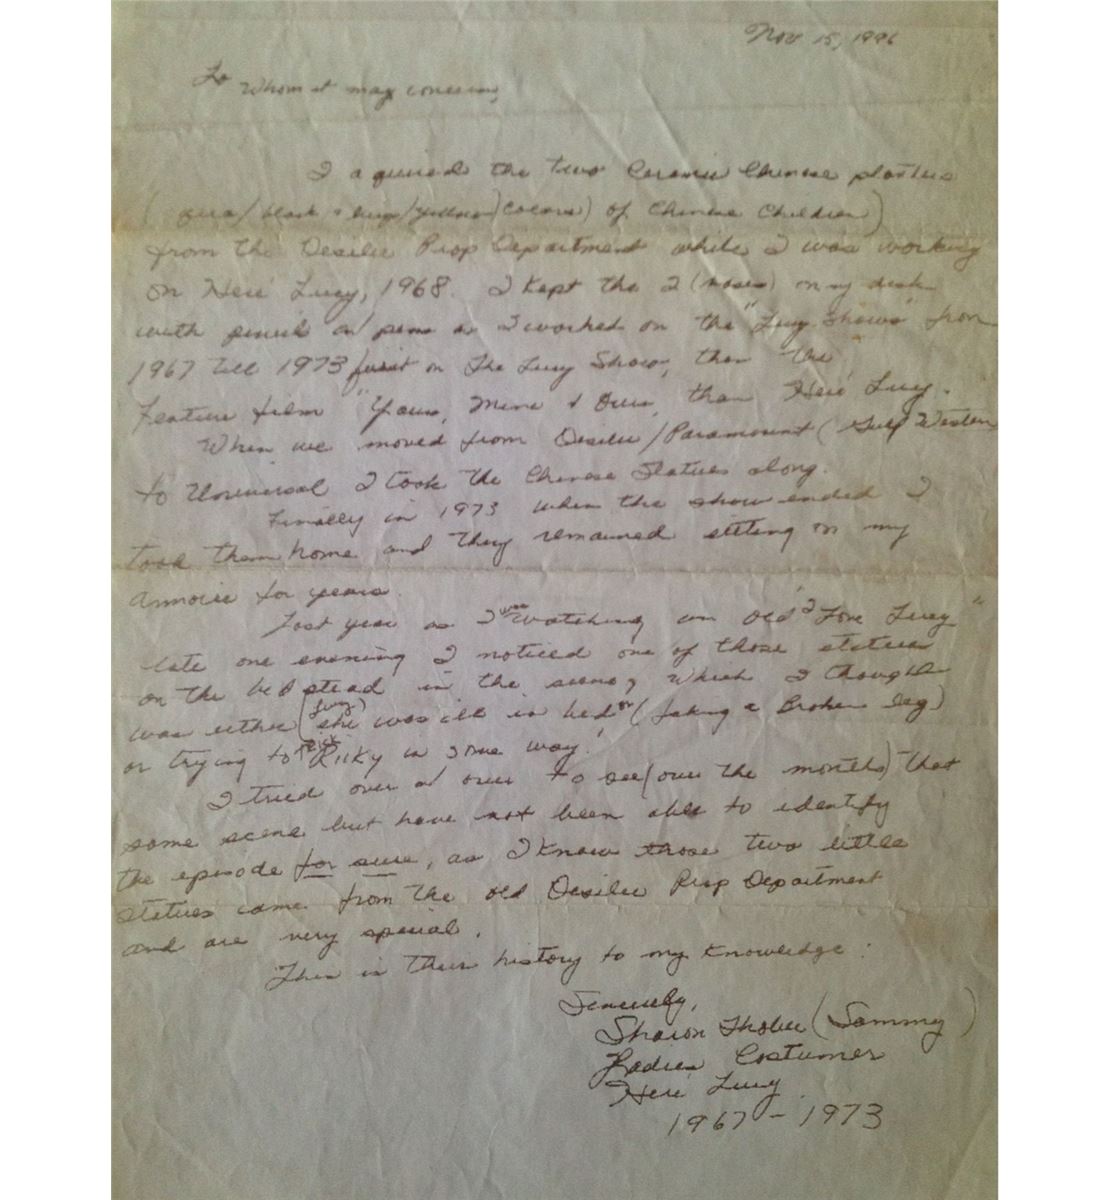 Nov 15, 1996
To Whom it may concern,
I aquired the two Ceramic Chinese
black colors) of Chinese Children)
from the Desilu Prop Department while I was working
on Here' Lucy, 1968. I kept the 2 (vases) on my desk
with pencils pens as I worked on the "Lucy Shows" from
1967 till 1973 first on The Lucy Show, then the
Feature film "Yours, Mine & Ours, then Here' Lucy.
When we moved from Desilu/Paramount (Gulf Western
to Universal I took the Chinese Statues along.
Finally in 1973 when the show ended I
took them home and they remained sitting on my
Armoire for years.
Last year as I was watching an old "I Love Lucy"
late one evening I noticed one of those statues
on the bedstead in the scene, which I thought
was either (Lucy) she was ill in bed or (faking a Broken leg)
or trying to trick Ricky in some way!
I tried over & over to see (over the months) that
same scene but have not been able to identify
the episode for sure, as I know those two little
statues came from the old Desilu Prop Department
and are very special.
This is their history to my Knowledge.
Sincerely,
Sharon (Sammy)
Ladies Costumer
Here' Lucy
1967 - 1973